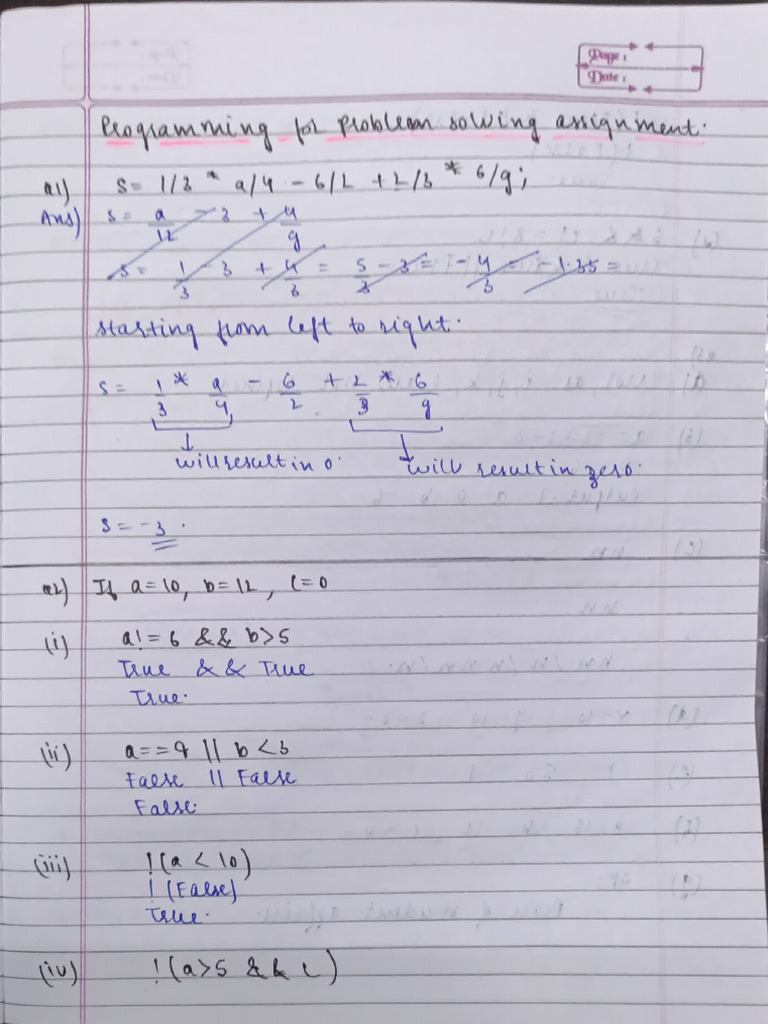 Page :
Date :
Programming for problem solving assignment.
Q1) S = 1/3 * a/4 - 6/2 + 2/3 * 6/g;
Ans) S = a/12 - 3 + 4/g
S = 1/3 - 3 + 4/3 = 5/3 - 3 = - 4/3 = -1.35 =
starting from left to right.
S = 1/3 * a/4 - 6/2 + 2/3 * 6/g
will result in 0. will result in zero.
S = -3.
Q2) If a=10, b=12, c=0
(i) a! = 6 && b>5
True && True
True.
(ii) a==9 || b<3
False || False
False.
(iii) !(a < 10)
! (False)
True.
(iv) !(a>5 && c)